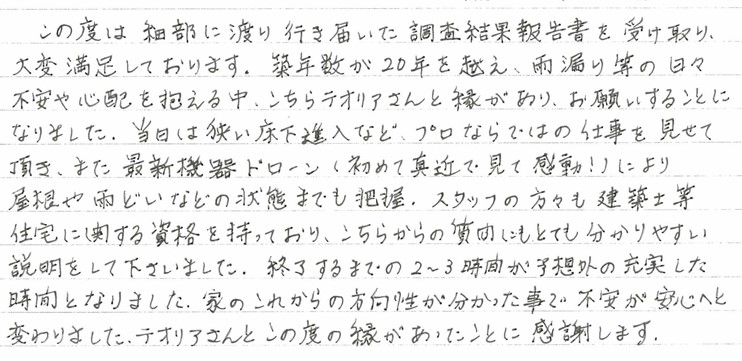 この度は細部に渡り行き届いた調査結果報告書を受け取り、
大変満足しております。築年数が20年を越え、雨漏り等の日々
不安や心配を抱える中、こちらテオリアさんと縁があり、お願いすることに
なりました。当日は狭い床下進入など、プロならではの仕事を見せて
頂き、また最新機器ドローン(初めて真近で見て感動!)により
屋根や雨どいなどの状態までも把握。スタッフの方々も建築士等
住宅に関する資格を持っており、こちらからの質問にもとても分かりやすい
説明をして下さいました。終了するまでの2~3時間が予想外の充実した
時間となりました。家のこれからの方向性が分かった事で不安が安心へと
変わりました。テオリアさんとこの度の縁があったことに感謝します。